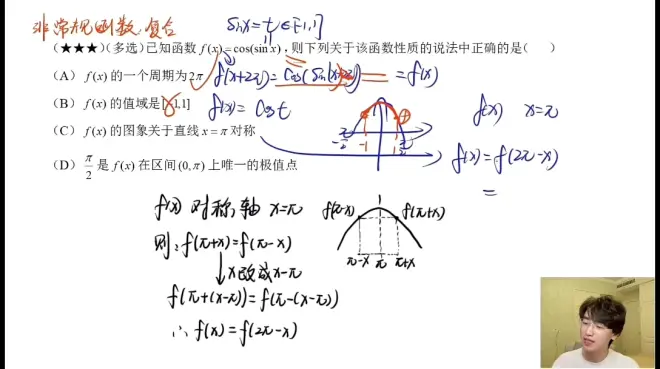 非常规函数 复合
sinx=t∈[-1,1]
(★★★)(多选)已知函数 f(x)=cos(sin x),则下列关于该函数性质的说法中正确的是( )
(A) f(x) 的一个周期为 2π f(x+2π)=cos(sin(x+2π)) = f(x)
(B) f(x) 的值域是[-1,1] f(x)=cost
(C) f(x) 的图象关于直线 x=π 对称
(D) π/2 是 f(x) 在区间(0,π) 上唯一的极值点
-π/2 -1 1 π/2
f(x) x=π
f(x)=f(2π-x)
=
f(x) 对称轴 x=π
则:f(π+x)=f(π-x)
↓x改成x-π
f(π+(x-π))=f(π-(x-π))
∴ f(x)=f(2π-x)
f(π-x) f(π+x)
π-x π π+x